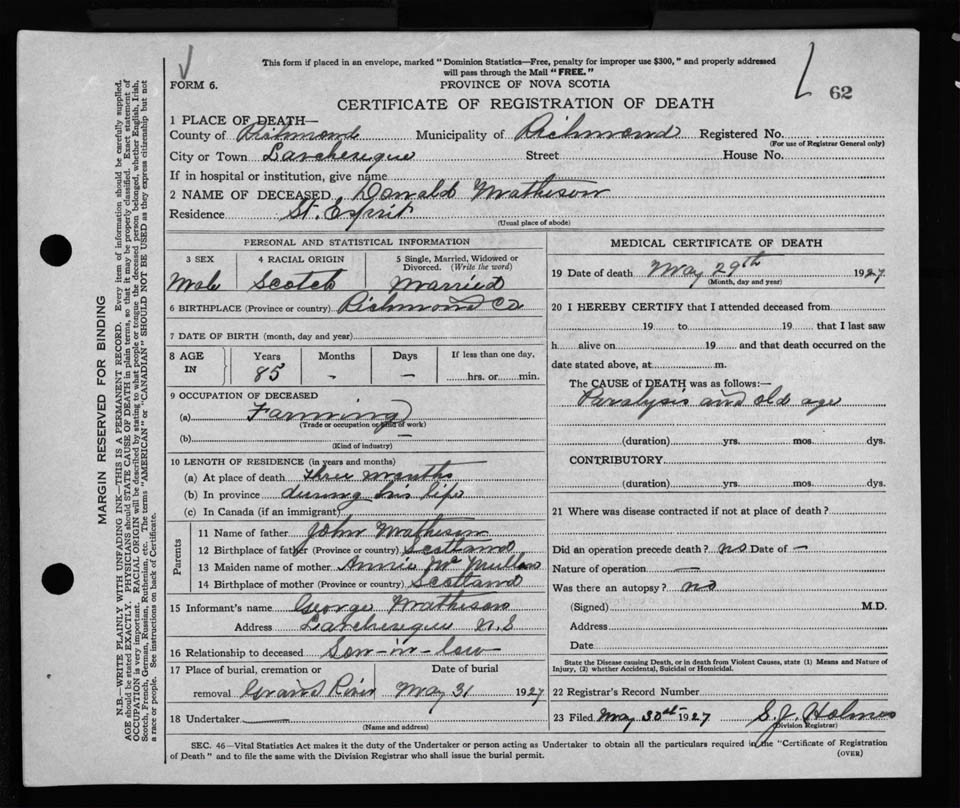 This form if placed in an envelope, marked "Dominion Statistics—Free, penalty for improper use $300," and properly addressed
will pass through the Mail "FREE."
FORM 6.
PROVINCE OF NOVA SCOTIA
62
CERTIFICATE OF REGISTRATION OF DEATH
1 PLACE OF DEATH—
County of Richmond Municipality of Richmond Registered No.
(For use of Registrar General only)
City or Town Larcheveque Street House No.
If in hospital or institution, give name
2 NAME OF DECEASED Donald Matheson
Residence St. Esprit
(Usual place of abode)
PERSONAL AND STATISTICAL INFORMATION
3 SEX 4 RACIAL ORIGIN 5 Single, Married, Widowed or
Divorced. (Write the word)
Male Scotch Married
6 BIRTHPLACE (Province or country) Richmond Co
7 DATE OF BIRTH (month, day and year)
8 AGE IN Years Months Days If less than one day,
85 - — hrs. or min.
9 OCCUPATION OF DECEASED
(a) Farming
(Trade or occupation or kind of work)
(b) —
(Kind of industry)
10 LENGTH OF RESIDENCE (in years and months)
(a) At place of death three months
(b) In province during his life
(c) In Canada (if an immigrant)
Parents
11 Name of father John Matheson
12 Birthplace of father (Province or country) Scotland
13 Maiden name of mother Annie
14 Birthplace of mother (Province or country) Scotland
15 Informant's name George Matheson
Address Larcheveque N.S
16 Relationship to deceased Son-in-law
17 Place of burial, cremation or Date of burial
removal Grand River May 31 1927
18 Undertaker
(Name and address)
MEDICAL CERTIFICATE OF DEATH
19 Date of death May 29th 1927
(Month, day and year)
20 I HEREBY CERTIFY that I attended deceased from
19 to 19 that I last saw
h alive on 19 and that death occurred on the
date stated above, at m.
The CAUSE of DEATH was as follows:—
Paralysis and old age
(duration) yrs. mos. dys.
CONTRIBUTORY
(duration) yrs. mos. dys.
21 Where was disease contracted if not at place of death?
Did an operation precede death? no Date of —
Nature of operation —
Was there an autopsy? no
(Signed) M.D.
Address
Date
State the Disease causing Death, or in death from Violent Causes, state (1) Means and Nature of
Injury, (2) whether Accidental, Suicidal or Homicidal.
22 Registrar's Record Number
23 Filed May 30th 1927 S. J. Holmes
Division Registrar)
SEC. 46—Vital Statistics Act makes it the duty of the Undertaker or person acting as Undertaker to obtain all the particulars required in the "Certificate of Registration
of Death" and to file the same with the Division Registrar who shall issue the burial permit.
(OVER)
MARGIN RESERVED FOR BINDING
N.B.—WRITE PLAINLY WITH UNFADING INK—THIS IS A PERMANENT RECORD. Every item of information should be carefully supplied.
AGE should be stated EXACTLY. PHYSICIANS should STATE CAUSE OF DEATH in plain terms, so that it may be properly classified. Exact statement of
OCCUPATION is very important. RACIAL ORIGIN will be described by stating to what people or tongue the deceased person belonged, whether English, Irish,
Scotch, French, German, Russian, Ruthenian, etc. The terms "AMERICAN" or "CANADIAN" SHOULD NOT BE USED as they express citizenship but not
a race or people. See instructions on back of Certificate.